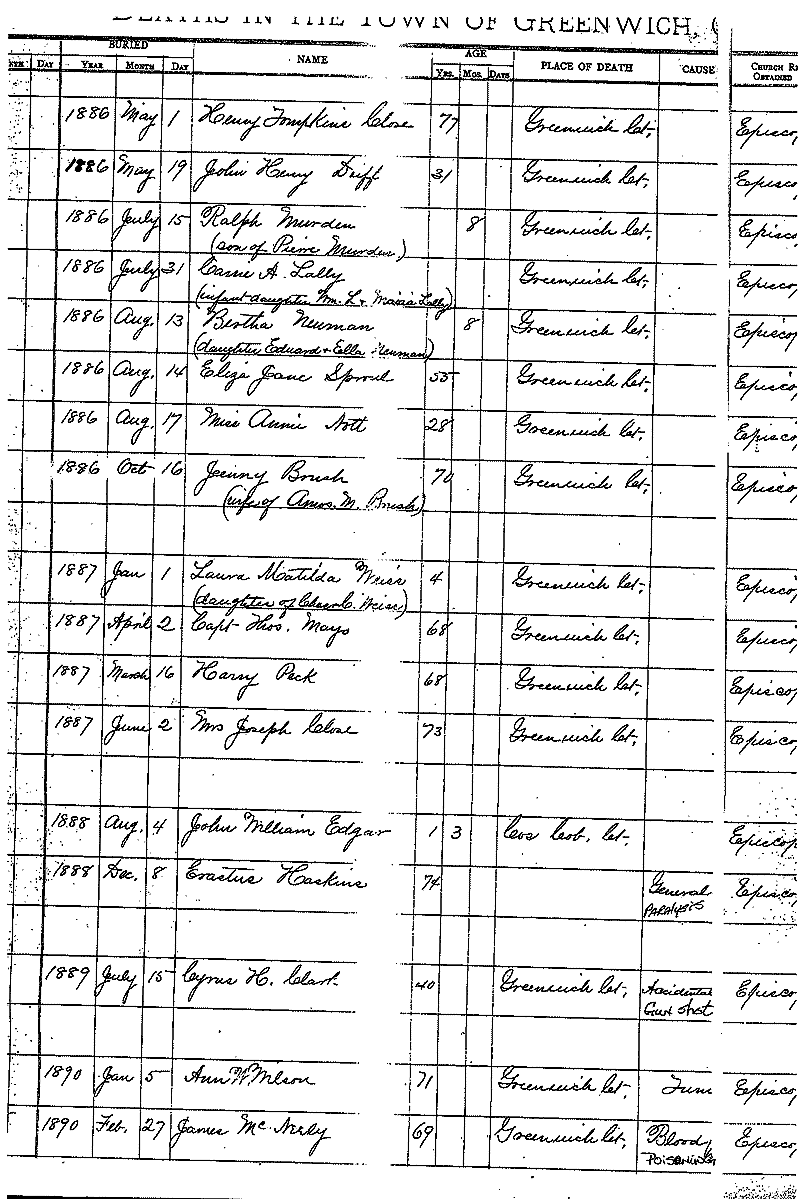 DEATHS IN THE TOWN OF GREENWICH, C
BURIED AGE
DAY YEAR MONTH DAY NAME YRS. MOS. DAYS PLACE OF DEATH CAUSE CHURCH RE
OBTAINED
1886 May 1 Henry Tompkins Close 77 Greenwich Ct, Episco,
1886 May 19 John Henry 31 Greenwich Ct, Episco
1886 July 15 Ralph Murden 8 Greenwich Ct, Episco
(son of Pierre Murden)
1886 July 31 Carrie A. Lally Greenwich Ct, Episco,
(infant daughter Wm. L + Maria Lally)
1886 Aug. 13 Bertha Neuman 8 Greenwich Ct, Episcop
(daughter Eduard + Ella Neuman)
1886 Aug. 14 Eliza Jane Sproul 55 Greenwich Ct, Episco,
1886 Aug 17 Miss Annie Nott 28 Greenwich Ct, Episco,
1886 Oct 16 Jenny Brush 70 Greenwich Ct, Episco,
(wife of Amos. M. Brush)
1887 Jan 1 Laura Matilda Weiss 4 Greenwich Ct, Episco,
(daughter of Chas. C. Weiss)
1887 April 2 Capt Thos. Mayo 68 Greenwich Ct, Episco,
1887 March 16 Harry Peck 68 Greenwich Ct, Episcop
1887 June 2 Mrs Joseph Close 73 Greenwich Ct, Episco,
1888 Aug. 4 John William Edgar 1 3 Cos Cob, Ct, Episcop
1888 Dec. 8 Erastus Haskins 74 General Episco,
PARALYSIS
1889 July 15 Cyrus H. Clark 40 Greenwich Ct, Accidental Episco,
Gun shot
1890 Jan 5 Ann W Wilson 71 Greenwich Ct, Tum Episco,
1890 Feb. 27 James McNerly 69 Greenwich Ct, Blood Episco,
POISONING